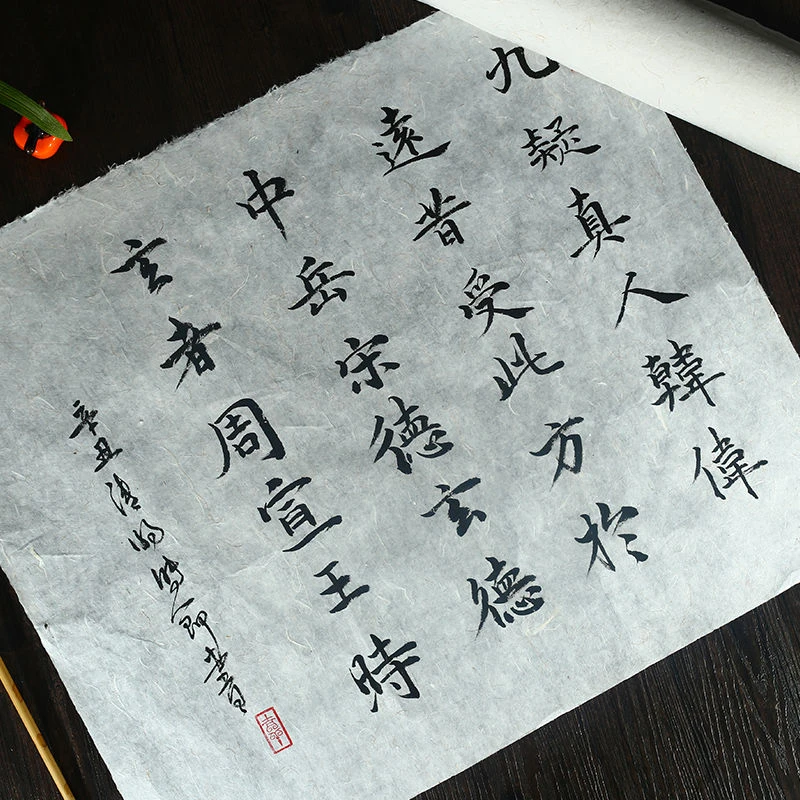 九疑真人韓偉
遠昔受此方於
中岳宗德玄德
玄者周宣王時
辛丑清明時節書